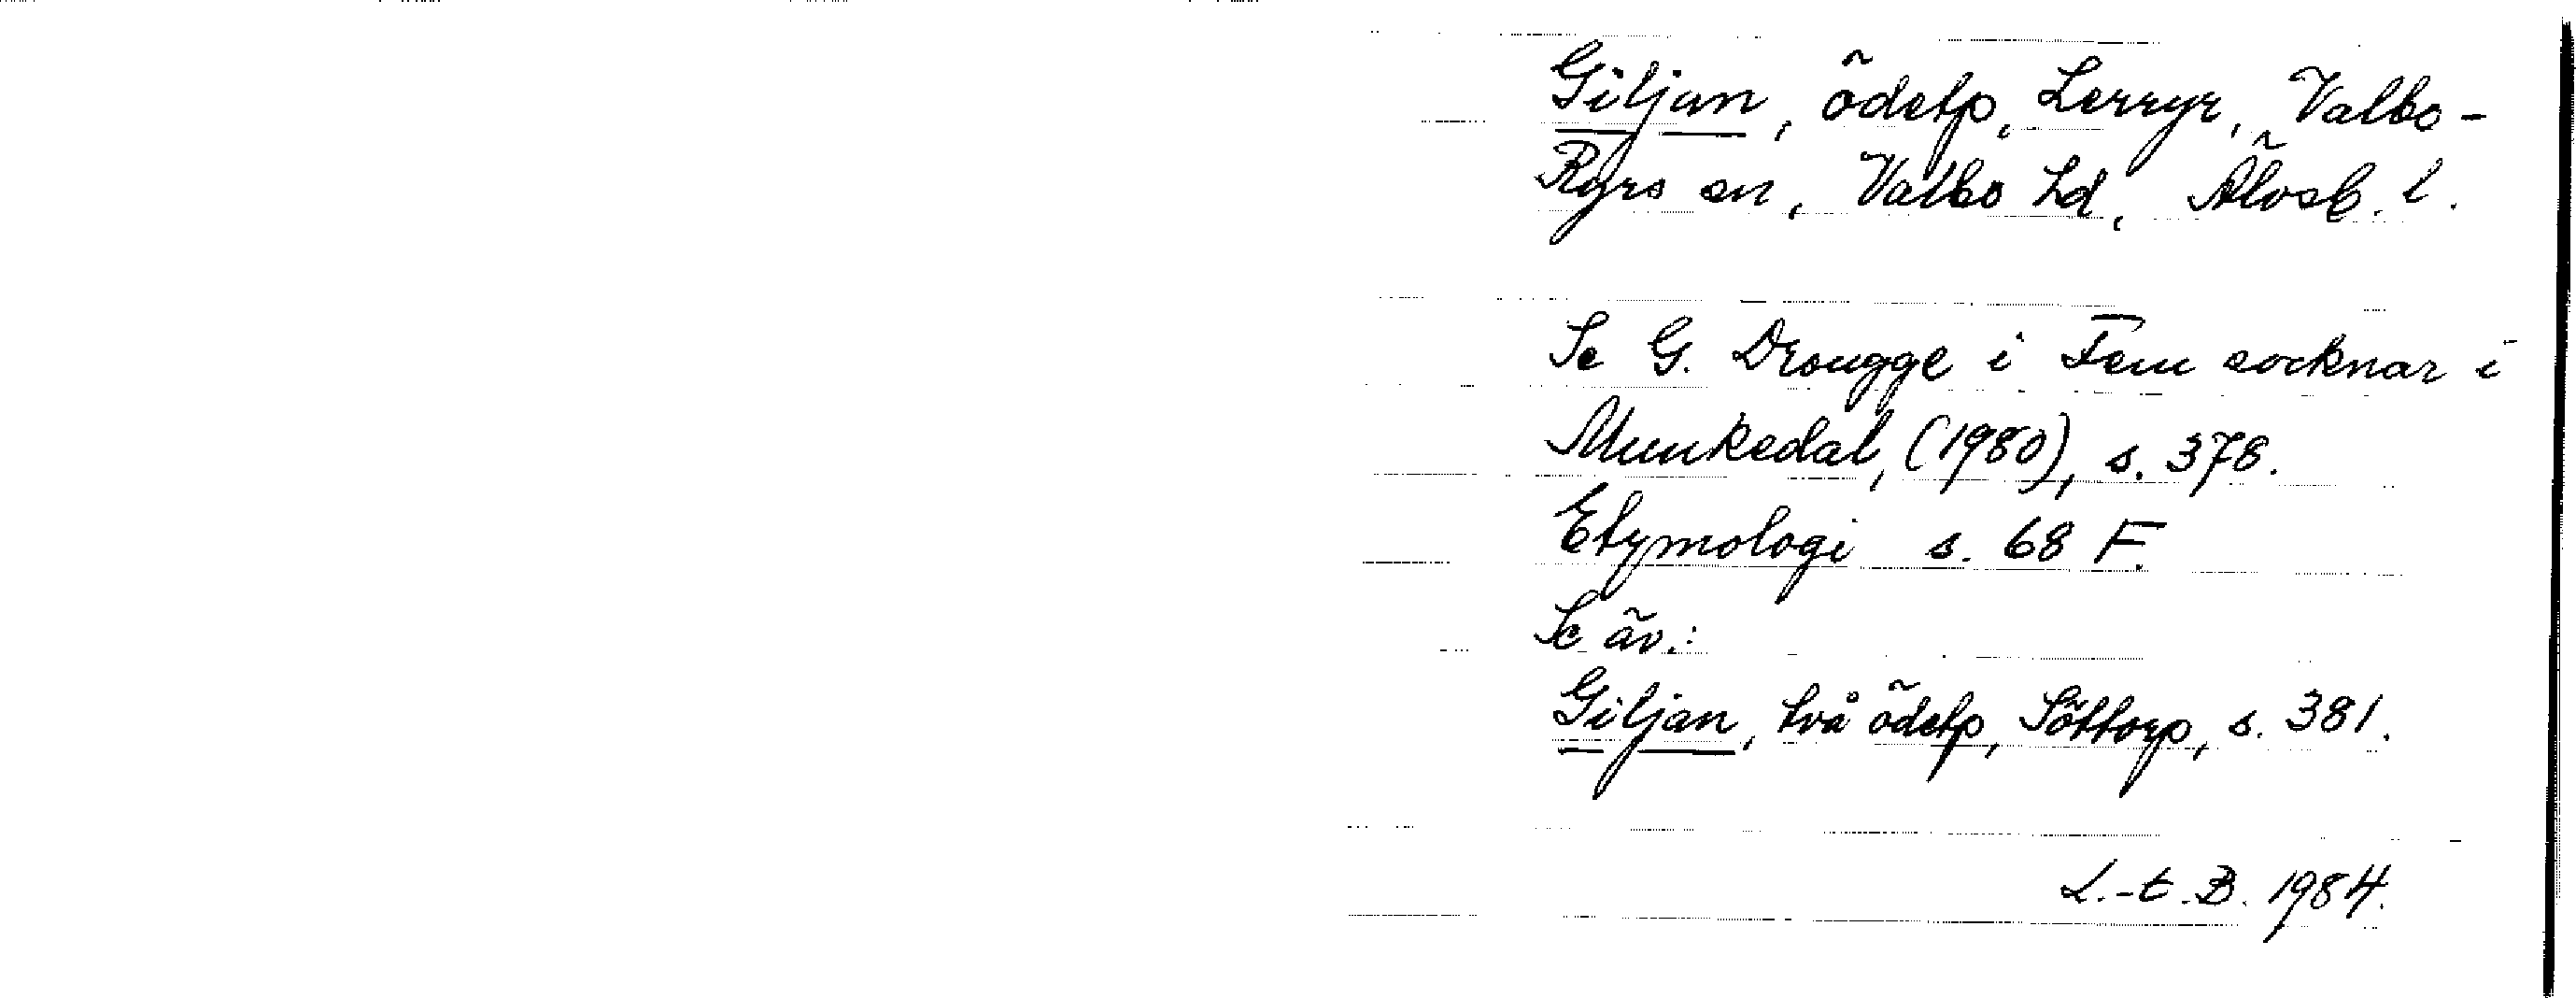 Giljan, ödetp, Lerryr, Valbo-
Ryrs sn, Valbo hd, Älvsb. l.
Se G. Drougge i Fem socknar i
Munkedal, (1980), s. 378.
Etymologi s. 68 F.
Se äv.:
Giljan, två ödetp, Söttorp, s. 381.
L.-t. B. 1984.